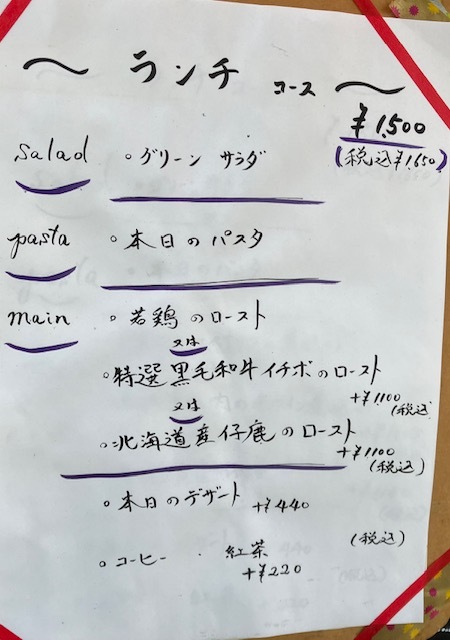 〜 ランチ コース 〜
¥1,500
(税込¥1,650)
Salad 。グリーン サラダ
pasta 。本日のパスタ
main 。若鶏のロースト
又は
。特選黒毛和牛イチボのロースト
+¥1,100
(税込)
又は
。北海道産仔鹿のロースト
+¥1100
(税込)
。本日のデザート +¥440
(税込)
。コーヒー ・ 紅茶
+¥220